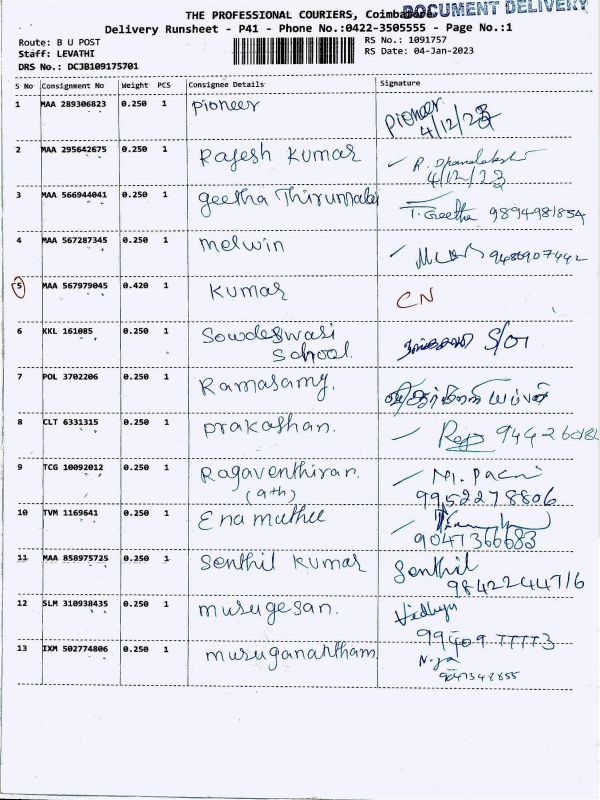 THE PROFESSIONAL COURIERS, Coimbatore
DOCUMENT DELIVERY
Delivery Runsheet - P41 - Phone No.:0422-3505555 - Page No.:1
Route: B U POST
RS No.: 1091757
Staff: LEVATHI
RS Date: 04-Jan-2023
DRS No.: DCJB109175701
S No Consignment No Weight PCS Consignee Details Signature
1 MAA 289306823 0.250 1 Pioneer Pioneer
4/12/23
2 MAA 295642675 0.250 1 Rajesh Kumar R. Dhanalakshmi
4/12/23
3 MAA 566944041 0.250 1 geetha Thirumalai T. Geetha 9894981854
4 MAA 567287345 0.250 1 melwin 9486907442
5 MAA 567979045 0.420 1 Kumar CN
6 KKL 161085 0.250 1 Sowdeswari S/O1
School.
7 POL 3702206 0.250 1 Ramasamy.
8 CLT 6331315 0.250 1 prakashan.
9 TCG 10092012 0.250 1 Ragaventhiran.
(9th) 9952278806
10 TVM 1169641 0.250 1 Ena muthu
9047366683
11 MAA 858975725 0.250 1 Senthil Kumar Senthil
9842244716
12 SLM 310938435 0.250 1 murugesan. Vidhya
99409 77773
13 IXM 502774806 0.250 1 muruganantham.
9047348855